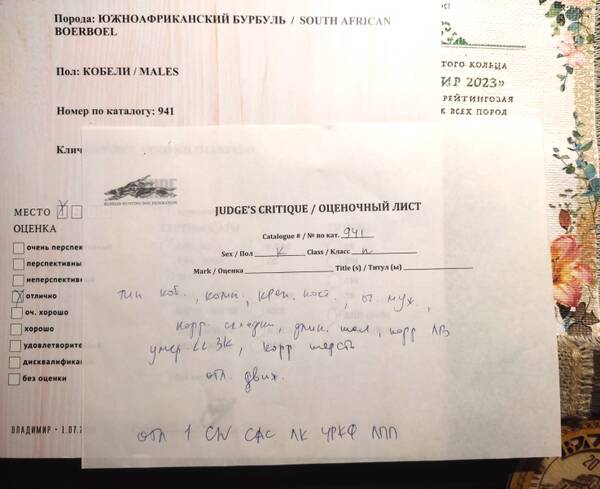 Порода: ЮЖНОАФРИКАНСКИЙ БУРБУЛЬ / SOUTH AFRICAN
BOERBOEL
Пол: КОБЕЛИ / MALES
Номер по каталогу: 941
Клич
ТОГО КОЛЬЦА
ИР 2023»
РЕЙТИНГОВАЯ
К ВСЕХ ПОРОД
МЕСТО
ОЦЕНКА
очень перспе
перспективны
неперспектив
отлично
оч. хорошо
хорошо
удовлетворите
дисквалифика
без оценки
ВЛАДИМИР • 1.07.2
RUSSIAN HUNTING DOG FEDERATION
JUDGE'S CRITIQUE / ОЦЕНОЧНЫЙ ЛИСТ
Catalogue # / № по кат. 941
Sex / Пол К Class / Класс п
Mark / Оценка Title (s) / Титул (ы)
тип коб., комп., креп. кост., от. муж.,
корр складки, длин. шея, корр ЛВ
умер LL ЗК, корр шерсть
отл. движ.
отл 1 CW CAC ЛК ЧРКФ ЛПП